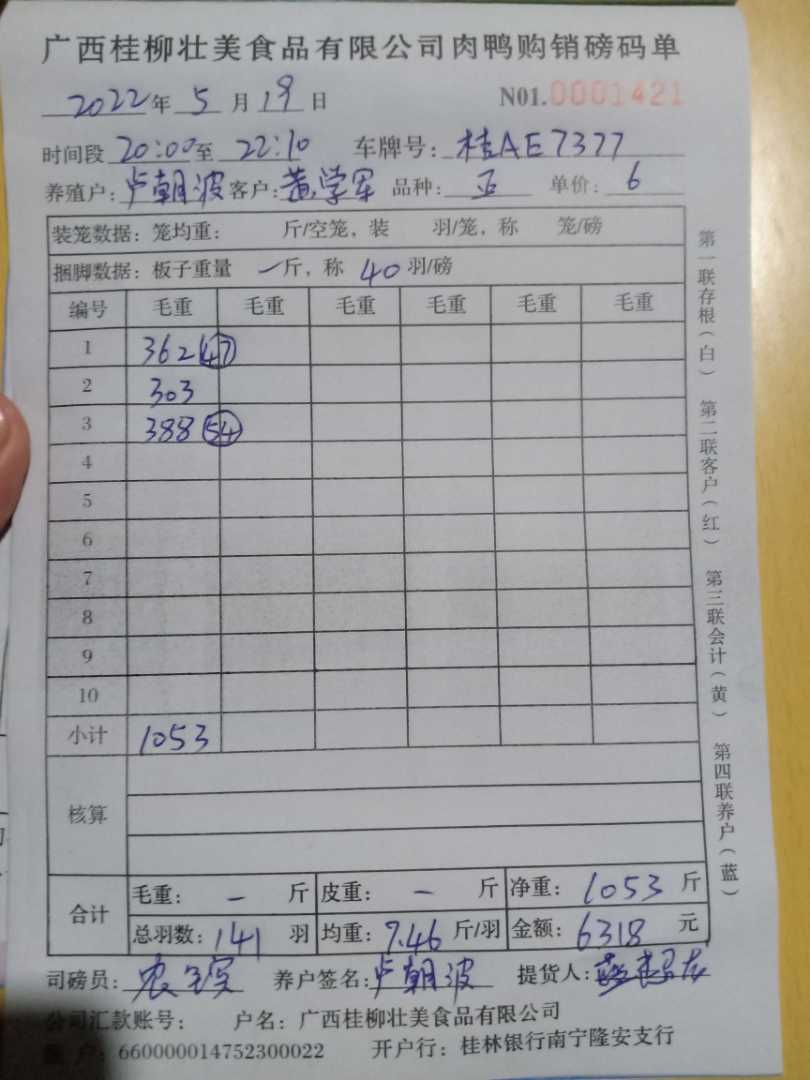 广西桂柳壮美食品有限公司肉鸭购销磅码单
2022年 5 月 19 日 N01.0001421
时间段 20:00 至 22:10 车牌号: 桂AE7377
养殖户: 卢朝波 客户: 黄学军 品种: 正 单价: 6
装笼数据: 笼均重: 斤/空笼, 装 羽/笼, 称 笼/磅
捆脚数据: 板子重量 一斤, 称 40 羽/磅
编号 毛重 毛重 毛重 毛重 毛重 毛重
1 362 47
2 303
3 388 54
4
5
6
7
8
9
10
小计 1053
核算
合计 毛重: - 斤 皮重: - 斤 净重: 1053 斤
总羽数: 141 羽 均重: 7.46 斤/羽 金额: 6318 元
司磅员: 养户签名: 卢朝波 提货人:
公司汇款账号: 户名: 广西桂柳壮美食品有限公司
户: 660000014752300022 开户行: 桂林银行南宁隆安支行
第一联存根(白) 第二联客户(红) 第三联会计(黄) 第四联养户(蓝)